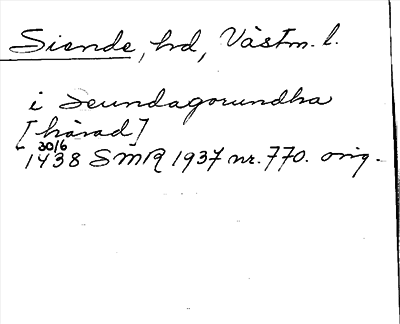 Siende, hd, Västm. l.
i Seundagorundha
[härad]
30/6
1438 SMR 1937 nr. 770. orig.